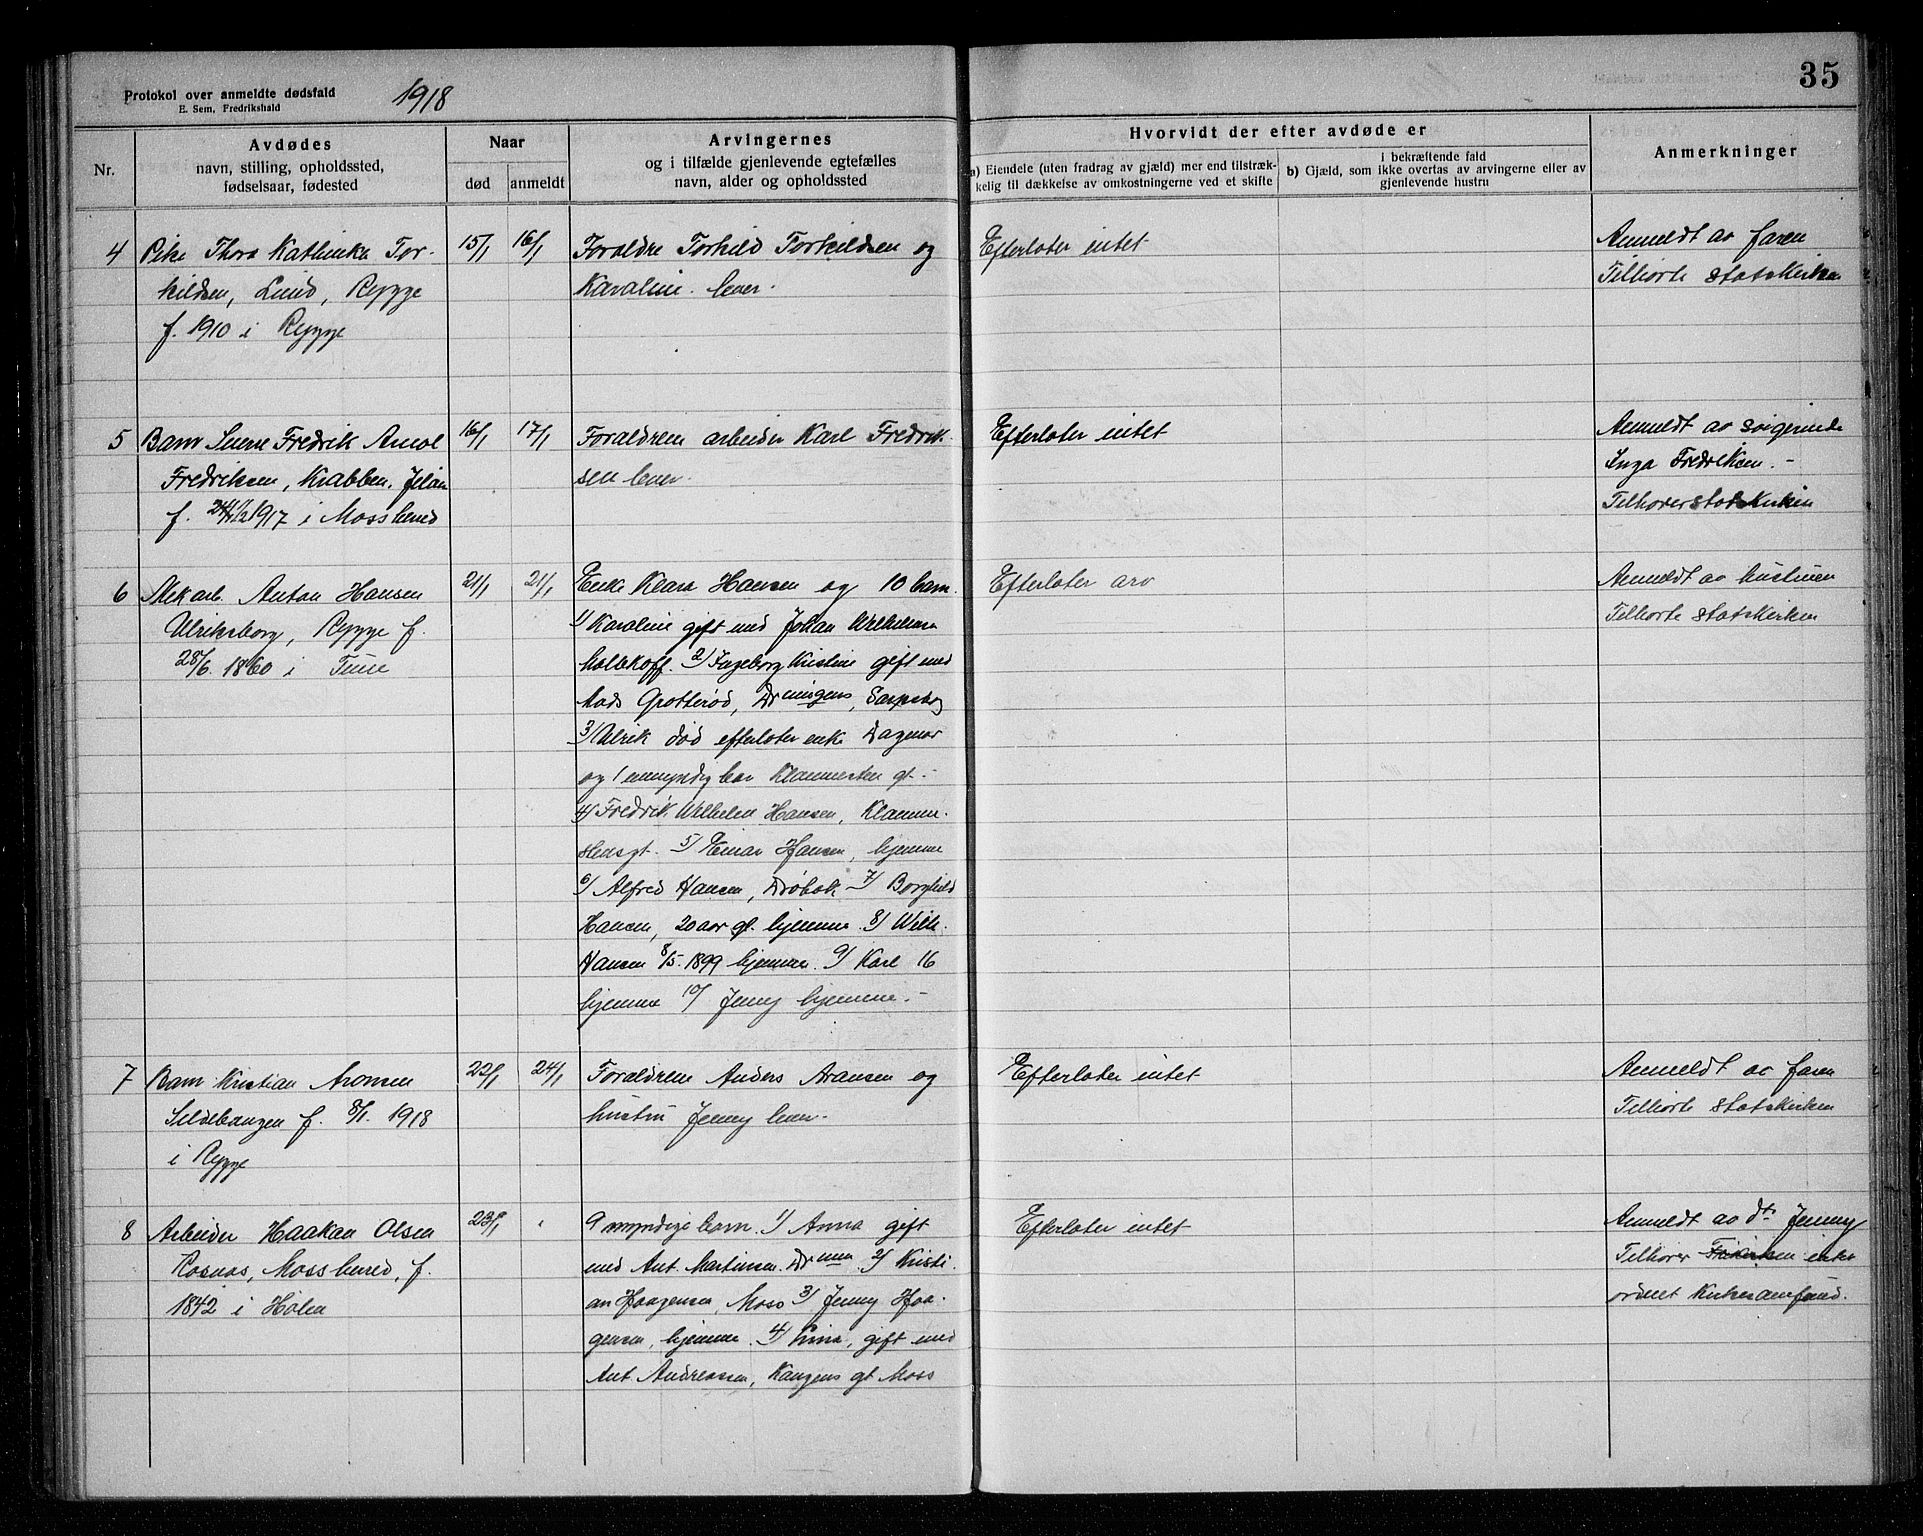 Protokol over anmeldte dødsfald
E. Sem, Fredrikshald
1918
35
Nr.
Avdødes
navn, stilling, opholdssted,
fødselsaar, fødested
Naar
død
anmeldt
Arvingernes
og i tilfælde gjenlevende egtefælles
navn, alder og opholdssted
Hvorvidt der efter avdøde er
a) Eiendele (uten fradrag av gjæld) mer end tilstræk-
kelig til dækkelse av omkostningerne ved et skifte
i bekræftende fald
b) Gjæld, som ikke overtas av arvingerne eller av
gjenlevende hustru
Anmerkninger
4
Pike Thora Kathinka Tor-
kildsen, Lund, Rygge
f. 1910 i Rygge
15/1
16/1
Forældre Torkild Torkildsen og
Karoline. lever.
Efterlater intet
Anmeldt av faren
Tilhørte statskirken
5
Barn Sverre Fredrik Arnol
Fredriksen, Krabben, Jeløen
f. 24/12 1917 i Moss herred
16/1
17/1
Forældrene arbeider Karl Fredrik-
sen lever.
Efterlater intet
Anmeldt av svigerinde
Inga Fredriksen. -
Tilhører statskirken
6
Mek arb. Anton Hansen
Ulriksborg, Rygge f.
28/6. 1860 i Tune
21/1
21/1
Enke Klara Hansen og 10 barn.
1) Karoline gift med Johan Wilhelmsen
2) Ingeborg Kristine gift med
Mads Grotterød, Sarpsborg
3) Ulrik død efterlater enke Dagmar
og 1 umyndig barn gt. -
4) Fredrik Wilhelm Hansen, Klommen-
stensgt. 5) Einar Hansen, hjemme
6) Alfred Hansen, Drøbak 7) Borghild
Hansen, 20 aar gl. hjemme. 8) Wilh.
Hansen 8/5. 1899 hjemme. 9) Karl 16
hjemme 10) Jenny hjemme. -
Efterlater arv
Anmeldt av hustruen
Tilhørte statskirken
7
Barn Kristian Aronsen
Sildebaugen f. 8/1. 1918
i Rygge
22/1
24/1
Forældrene Anders Aronsen og
hustru Jenny lever.
Efterlater intet
Anmeldt av faren
Tilhørte statskirken
8
Arbeider Haakon Olsen
Rosnes, Moss herred, f.
1842 i Hølen
23/1
9 myndige barn. 1) Anna gift
med Ant. Martinsen. Drmen 2) Kristi-
an Haagensen, Moss 3) Jenny Haa-
gensen, hjemme. 4) Lina, gift med
Ant. Andreassen, Kongens gt Moss
Efterlater intet
Anmeldt av dt. Jenny
Tilhører Frikirken intet
ordnet kirkesamfund.